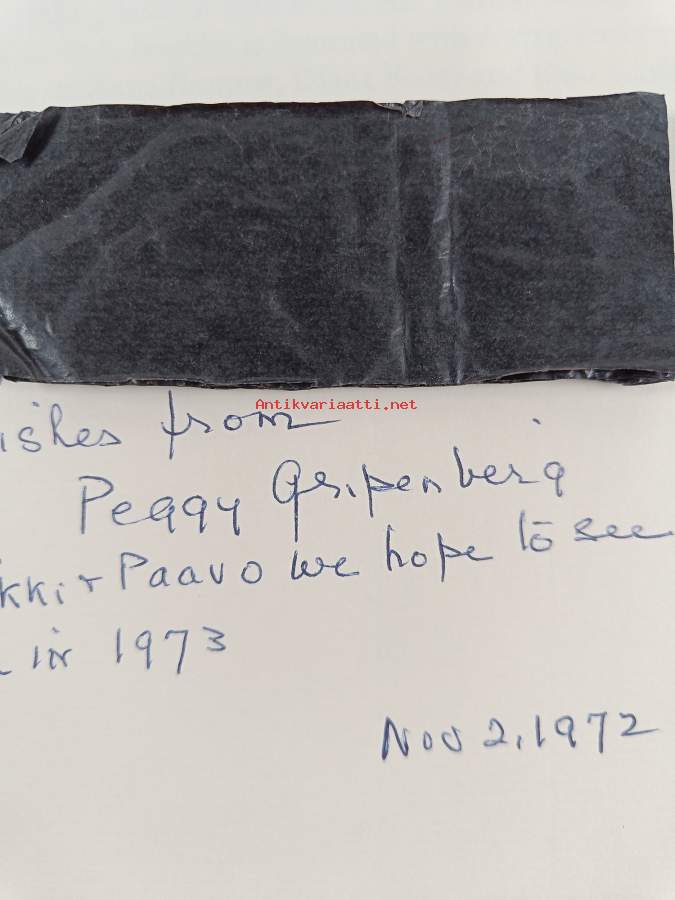 Antikvariaatti.net
ishes from
Peggy Gripenberg
kki + Paavo we hope to see
in 1973
Nov 2, 1972